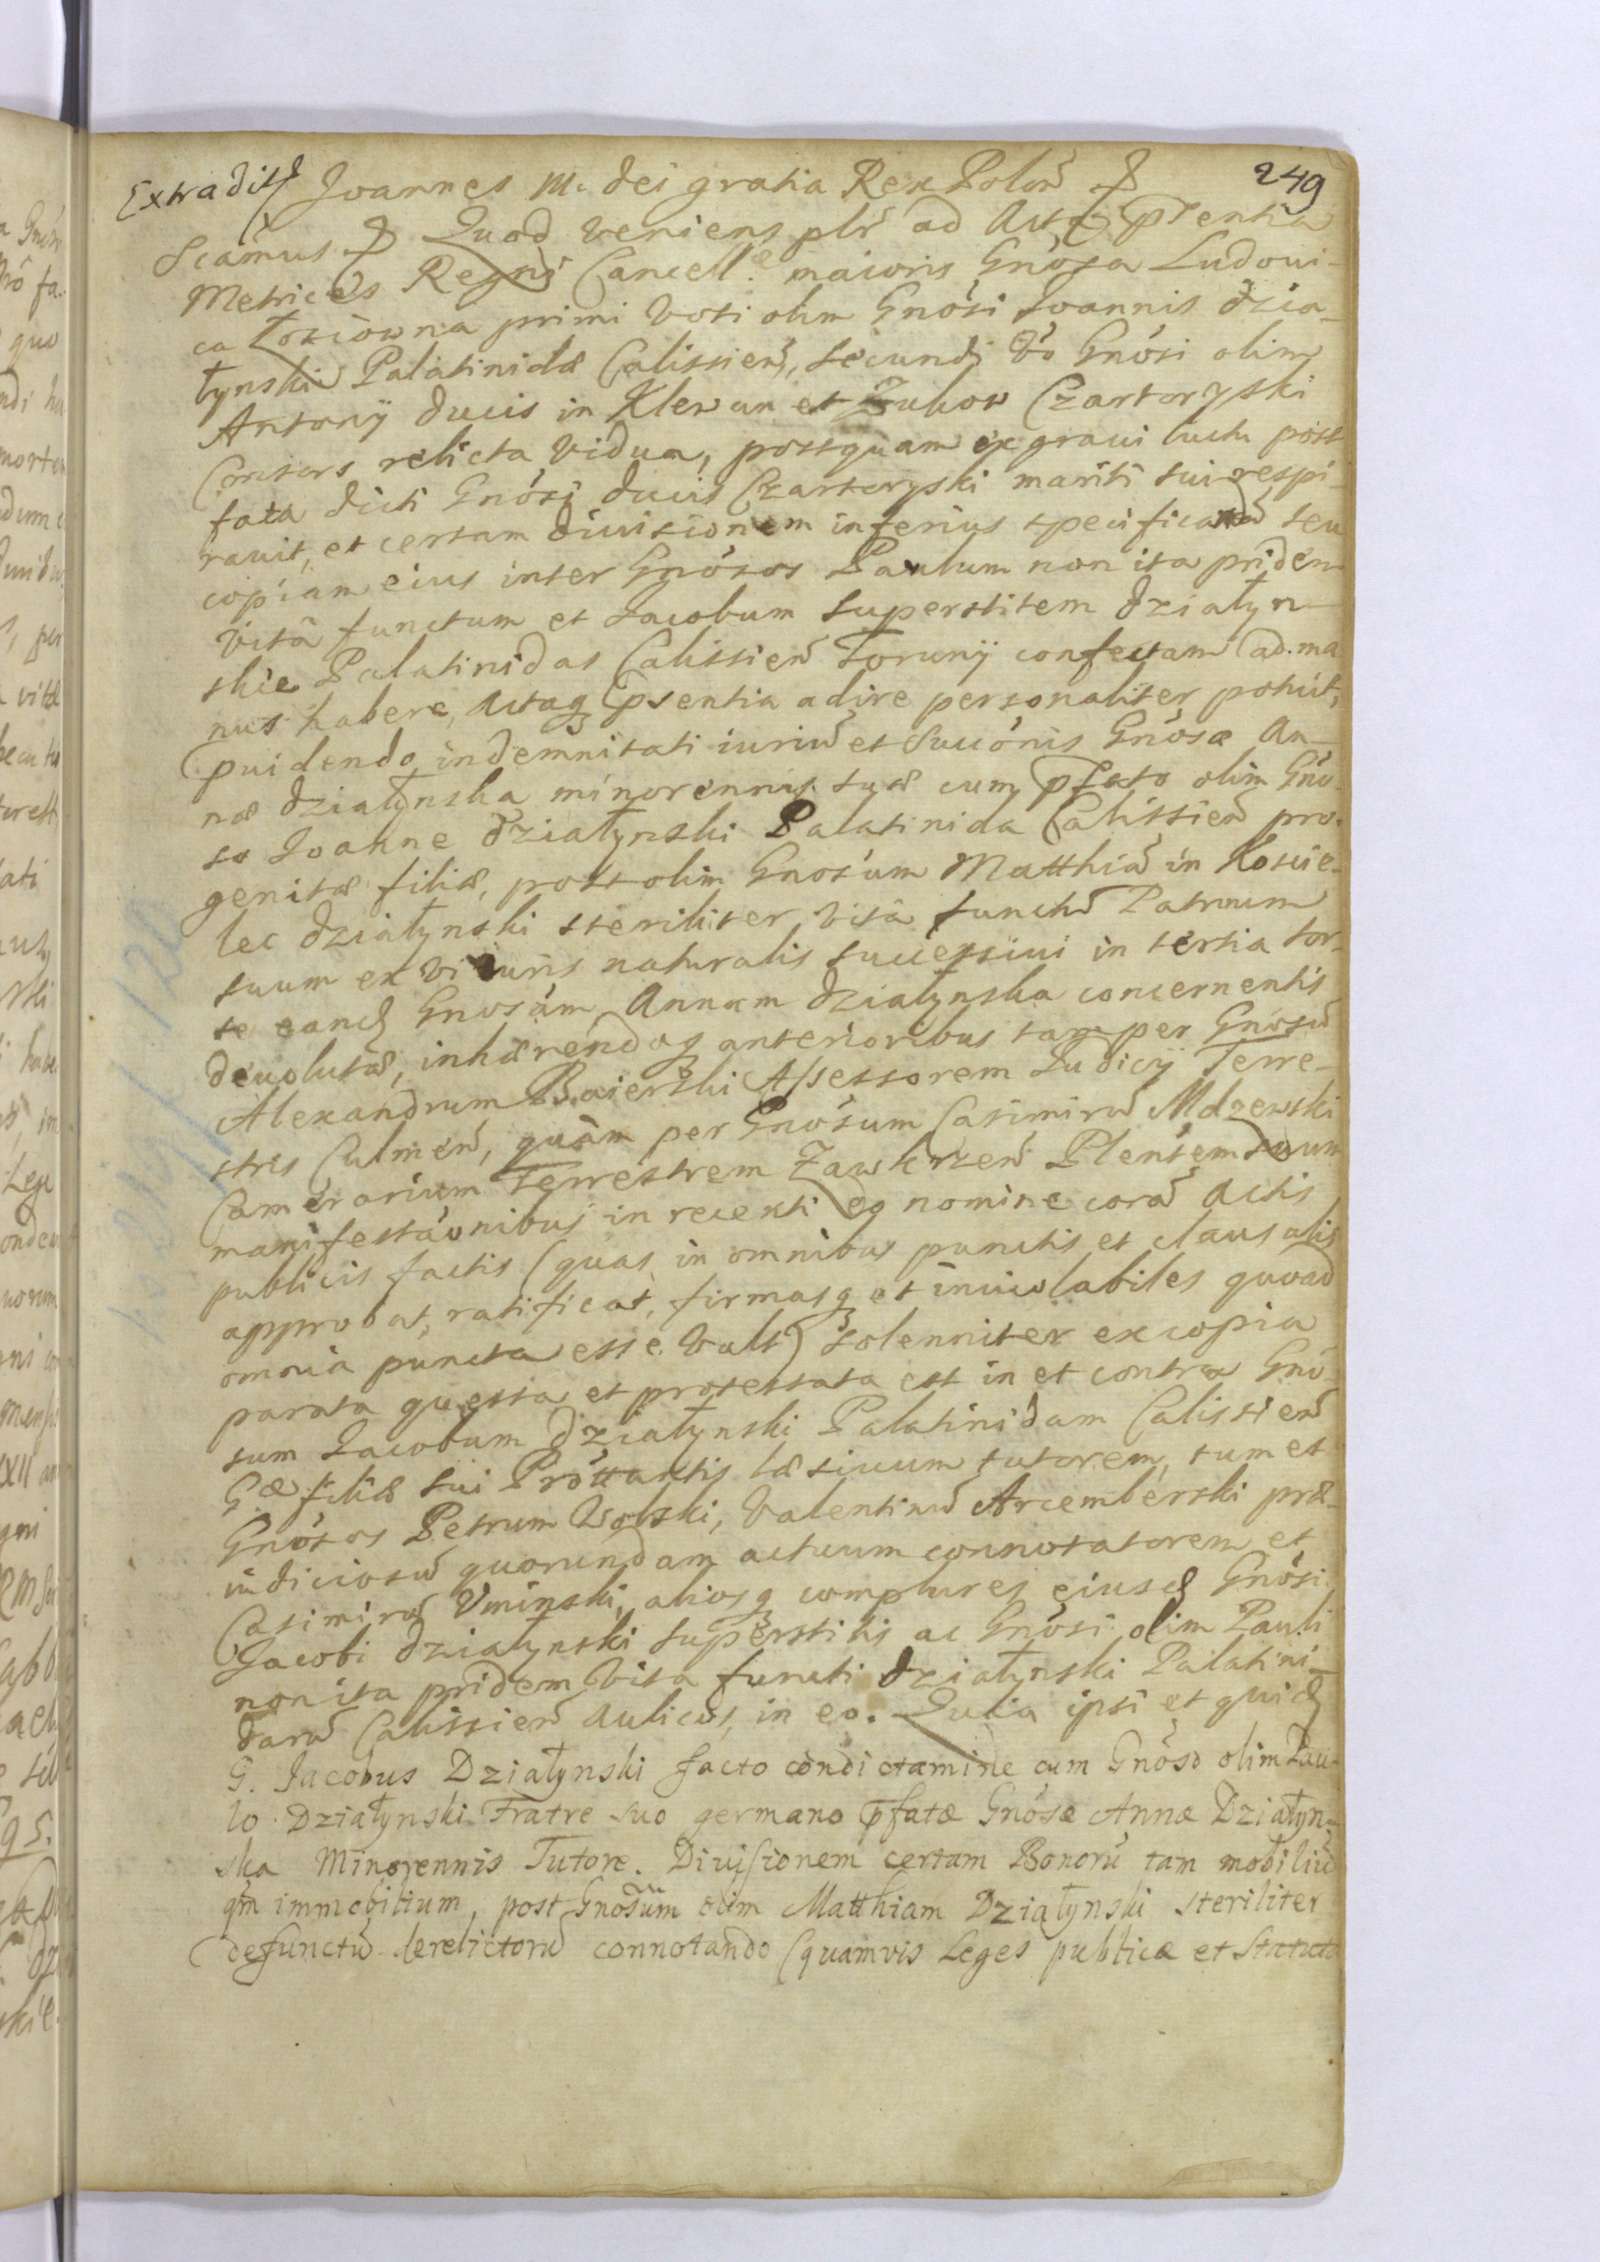 249
Extradit Joannes III. dei gratia Rex Polon̄
Scāmus Quod veniens plr̄ ad Acta p̄sentia
Metrices Regni Cancell.æ maioris Gnōsa Ludoui-
ca Łosiowna primi voti olim Gnōsi Joannis dzia-
łynski Palatinidæ Calissien̄, secundi v̄o Gnōsi olim
Antonÿ ducis in Klewan et Zukow Czartoryski
Consors relicta vidua, postquam ex graui luctu post
fata dicti Gnōsi ducis Czartoryski mariti sui respi-
rauit, et certam diuisionem inferius specificatā seu
copiam eius inter Gnōsos Paulum non ita pridem
vitâ functum et Jacobum superstitem działyn-
skie Palatinidas Calissien̄ Torunÿ confectam ad ma
nus habere, Actaq p̄sentia adire personaliter potuit,
p̄uidendo indemnitati iuriū et Succōnis Gnōsæ An-
næ działynska minorennis suæ cum p̄fato olim Gnō-
so Joanne działynski Palatinida Calissien̄ pro-
genitæ filiæ, post olim Gnosum Matthiā in Koscie-
lec działynski steriliter vitâ functū Patruum
suum ex vi iuris naturalis successiui in tertia sor-
te eand Gnosam Annam działynska concernentis
deuolutæ, inhærendoq anterioribus tam per Gnosū
Alexandrum Baierski Assessorem Judicÿ Terre-
stris Culmen̄, quàm per Gnōsum Casimirū Mdzewski
Camerarium Terrestrem Zawkrzen̄ Plentem suum
manifestāonibus in recenti eo nomine corā Actis
publicis factis (quas in omnibus punctis et clausulis
approbat, ratificat, firmasq et inuiolabiles quoad
omnia puncta esse vult) solenniter ex copia
parata questa et protestata est in et contra Gnō-
sum Jacobum działynski Palatinidam Calissien̄
Gæ filiæ sui Prōttantis læsiuum tutorem, tum et
Gnōsos Petrum Wolski, Valentinū Arcemberski præ-
iudiciosū quorundam actuum connotatorem et
Casimirū Vminski, aliosq complures eiusd Gnōsi
Jacobi działynski superstitis ac Gnōsi olim Pauli
non ita pridem vita functi działynski Palatini-
darū Calissien̄ Aulicos, in eo. Quia ipsi et quid
G. Jacobus Działynski facto condictamine cum Gnōso olim Pau-
lo Działynski Fratre suo germano p̄fatæ Gnōsæ Annæ Działyn-
ska Minorennis Tutore. Diuisionem certam Bonorū tam mobiliū
qm̄ immobilium, post Gnōsum olim Matthiam Działynski steriliter
defunctū derelictorū connotando (quamvis Leges publicæ et Statuta